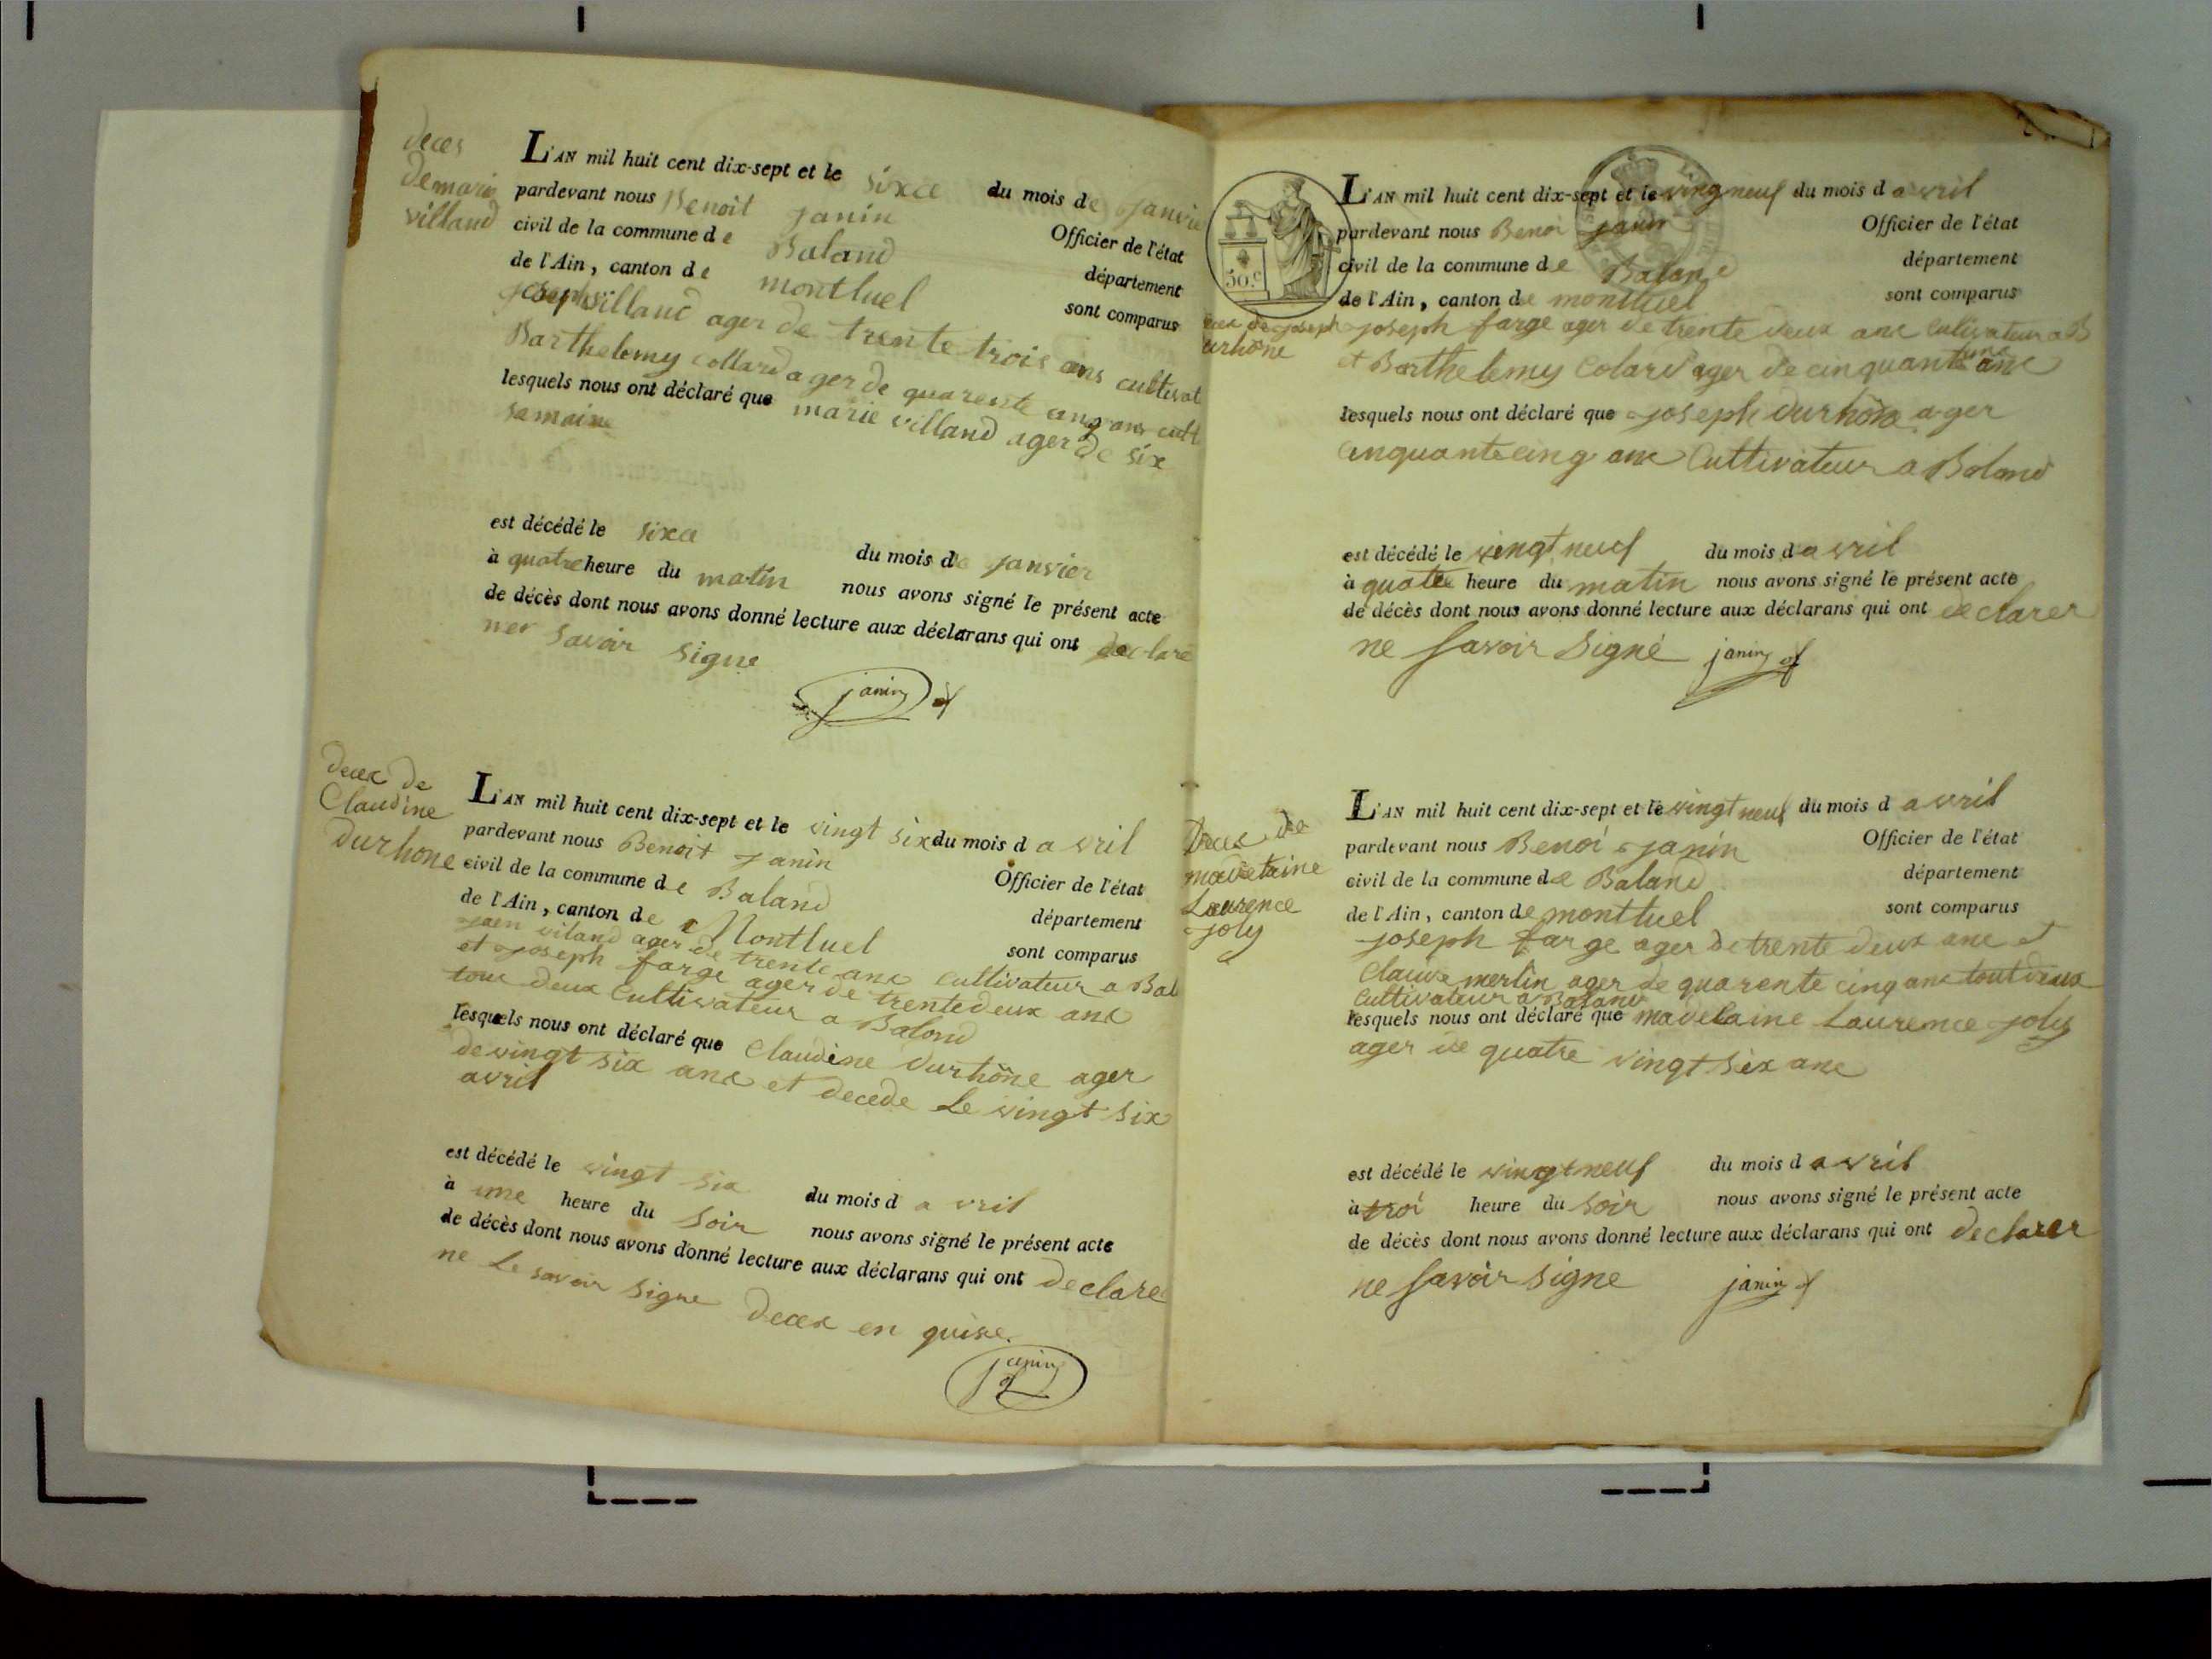 deces
de marie
villand
L'AN mil huit cent dix-sept et le sixce du mois de janvie
pardevant nous Benoit janin Officier de l'état
civil de la commune de Baland département
de l'Ain, canton de montluel sont comparus
joseph villand ager de trente trois ans cultivat
Barthelemy collard ager de quarente cinq ans cult
lesquels nous ont déclaré que marie villand ager de six
semaine
est décédé le sixce du mois de janvier
à quatre heure du matin nous avons signé le présent acte
de décès dont nous avons donné lecture aux déclarans qui ont declare
ner savoir signe
janin
decex de
Claudine
durhone
L'AN mil huit cent dix-sept et le vingt six du mois d avril
pardevant nous Benoit janin Officier de l'état
civil de la commune de Baland département
de l'Ain, canton de Montluel sont comparus
jaen viland ager de trente anc cultivateur a Bal
et joseph farge ager de trente deux anc
touc deux Cultivateur a Baland
lesquels nous ont déclaré que Claudine durhône ager
de vingt six anc et decede Le vingt six
avril
est décédé le vingt six du mois d avril
à une heure du soir nous avons signé le présent acte
de décès dont nous avons donné lecture aux déclarans qui ont declare
ne Le savoir signe decex en quise.
janin
50.c
L'AN mil huit cent dix-sept et le vingneuf du mois d avril
pardevant nous Benoi janin Officier de l'état
civil de la commune de Baland département
de l'Ain, canton de montluel sont comparus
de joseph
urhône
joseph farge ager de trente deux anc Cultivateur a B
et Barthelemy Colard ager de cinquante une anc
lesquels nous ont déclaré que joseph durhône ager
cinquante cinq anc Cultivateur a Baland
est décédé le vingt neuf du mois d avril
à quatre heure du matin nous avons signé le présent acte
de décès dont nous avons donné lecture aux déclarans qui ont declarer
ne savoir signé janin
Decex de
madelaine
Laurence
joly
L'AN mil huit cent dix-sept et le vingt neuf du mois d avril
pardevant nous Benoi janin Officier de l'état
civil de la commune de Baland département
de l'Ain, canton de montluel sont comparus
joseph farge ager de trente deux anc et
Claude merlin ager de quarente cinq anc tout deux
cultivateur a Baland
lesquels nous ont déclaré que madelaine Laurence joly
ager de quatre vingt six anc
est décédé le vingt neuf du mois d avril
à troi heure du soir nous avons signé le présent acte
de décès dont nous avons donné lecture aux déclarans qui ont declarer
ne savoir signe janin